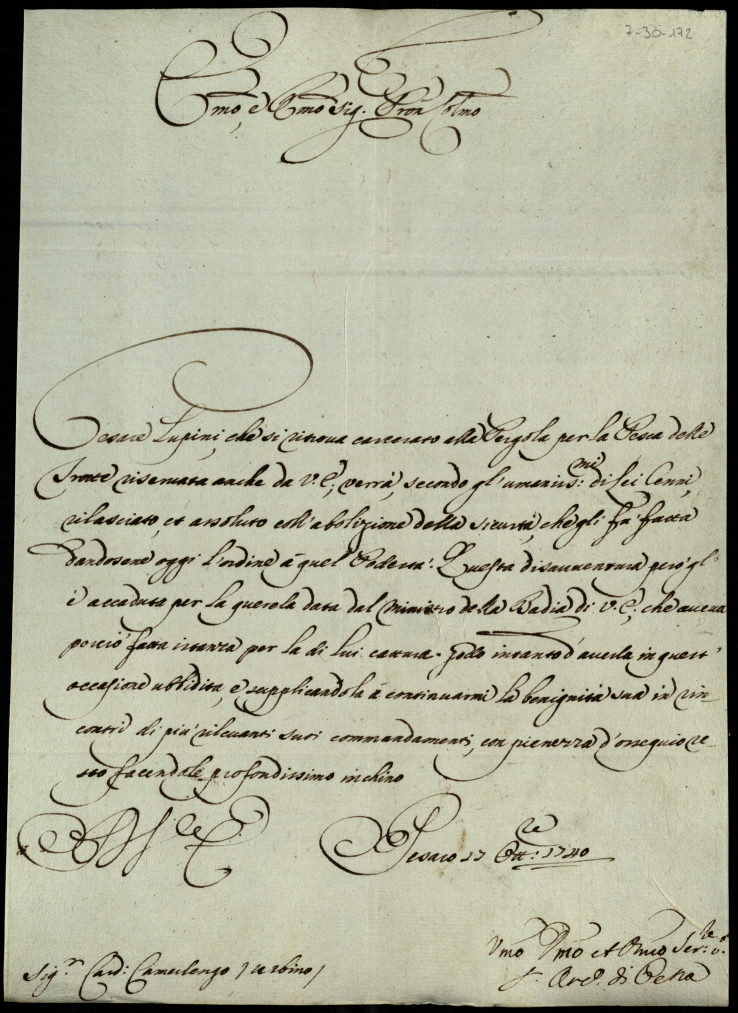 7-30-172
Emo, e Rmo Sig. Pron Colmo
Cesare Lupini, che si ritrova carcerato alla Pergola per la Pesca delle
Tronte riservata anche da V. E., verrà, secondo gl'umaniss:mi di Lei Cenni,
rilasciato, et assoluto coll'abolizione della sicurtà, che gli fà fatta
dandosene oggi l'ordine à quel Podestà. Questa disavventura però gl'
è accaduta per la querela data dal Ministro della Badia di V. E., che aveva
perciò fatta istanza per la di lui cattura. Godo intanto d'averla in quest'
occasione ubbidita, e supplicandola à continuarmi la benignità sua in rin-
contri di più rilevanti suoi commandamenti, con pienezza d'ossequio re-
sto facendole profondissimo inchino
Pesaro 17 Ott:re 1740
Sig.r Card: Camerlengo / Urbino /
Vmo Dmo et Obmo Ser:re v.o